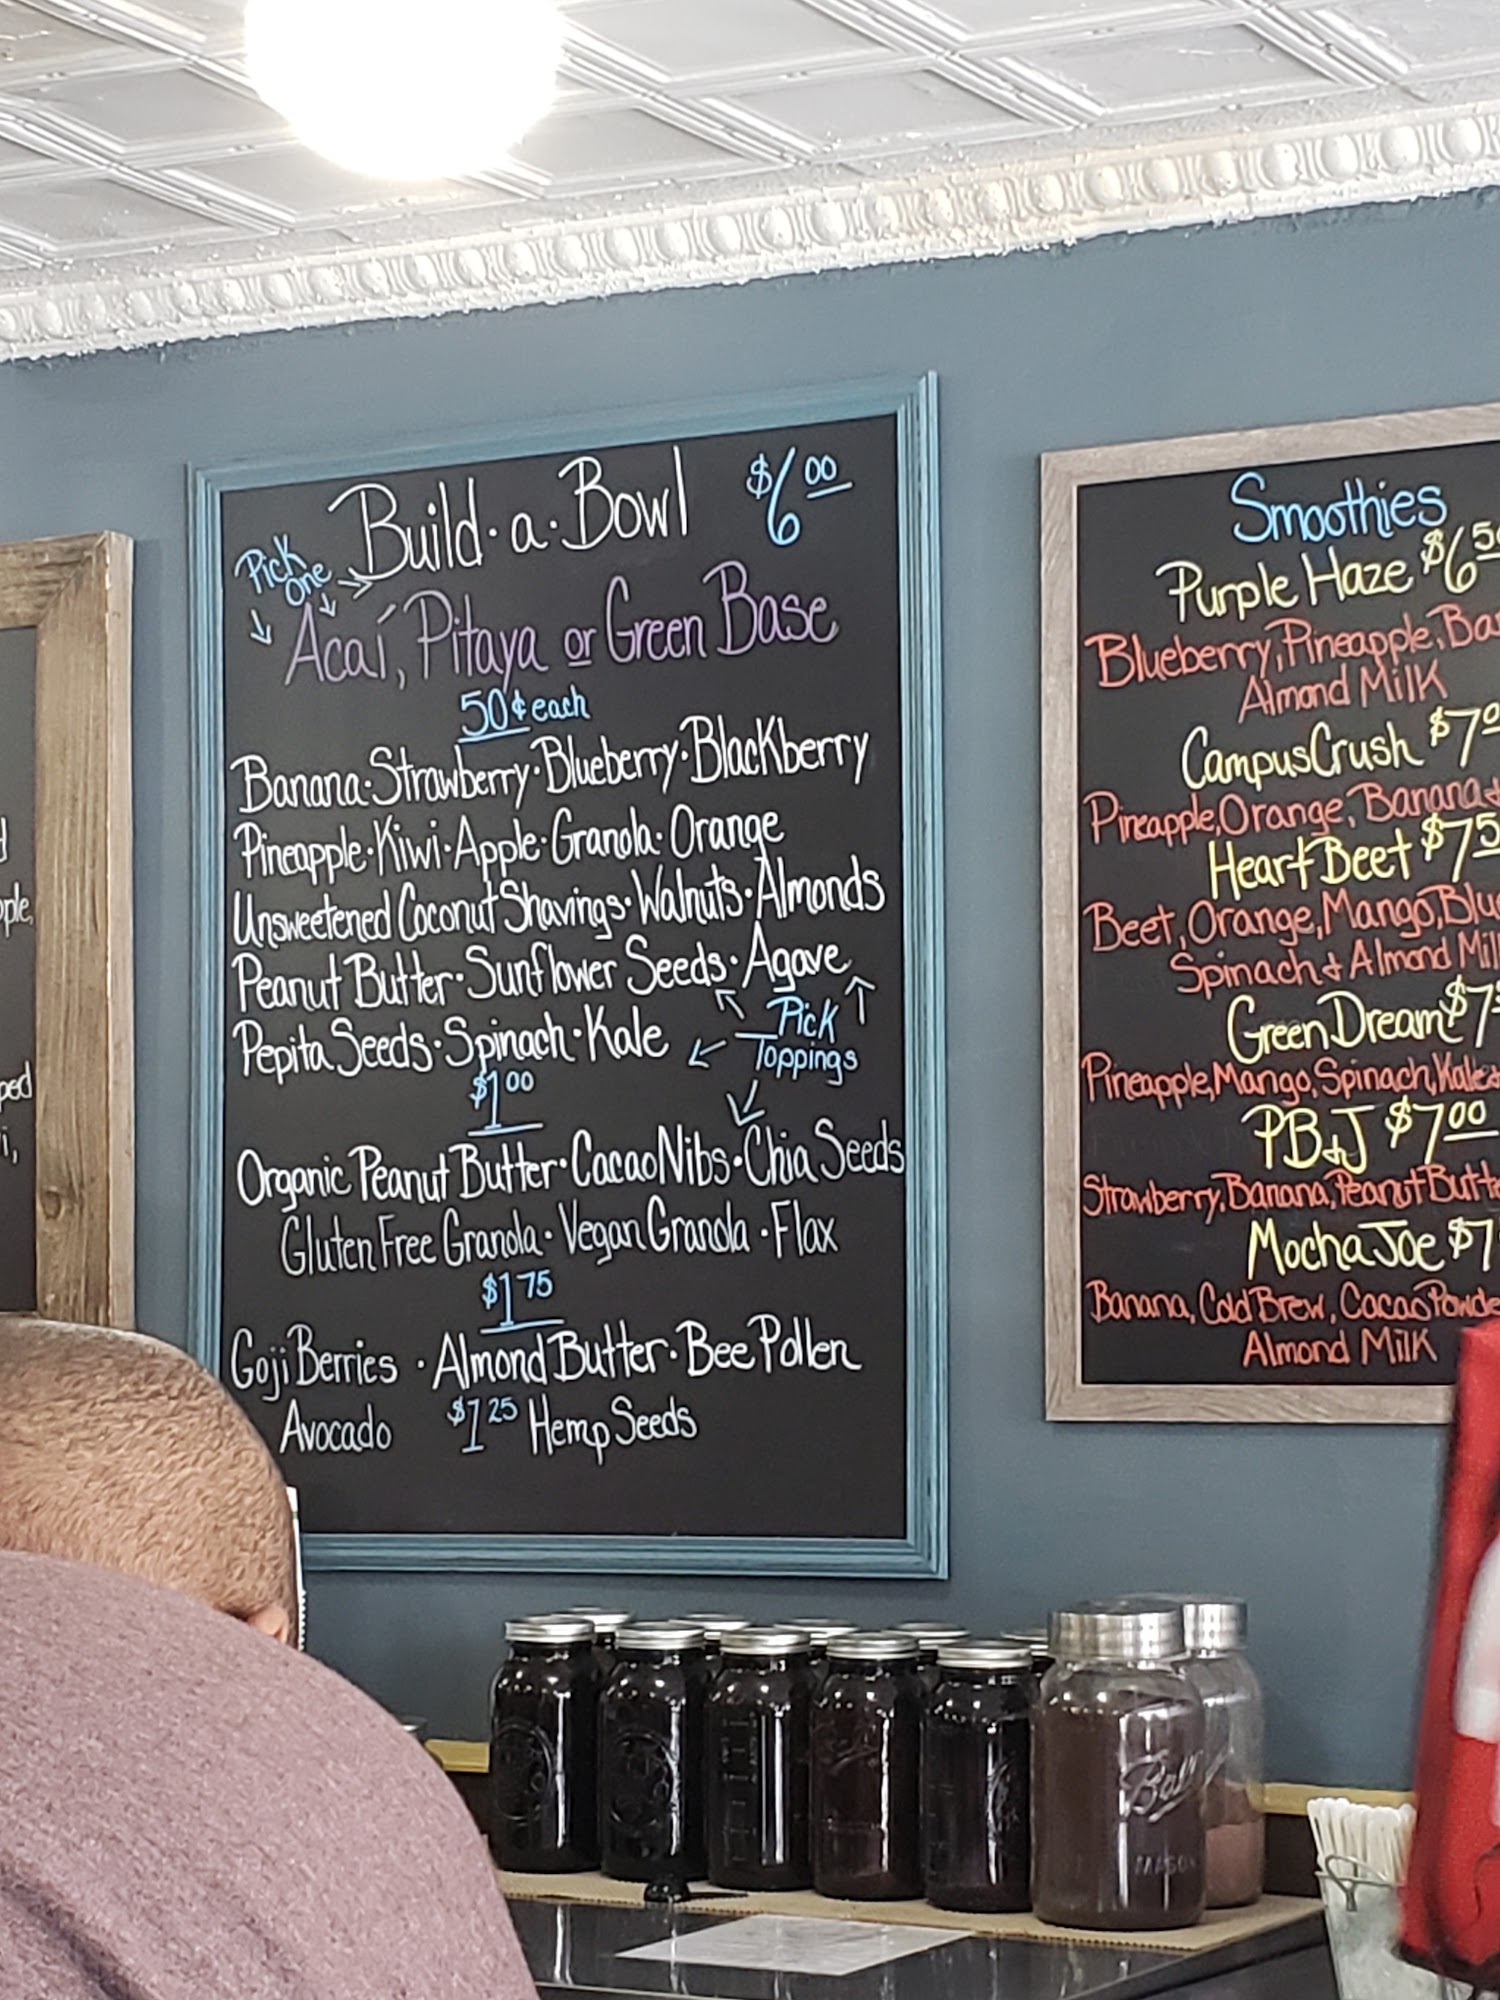 Build·a·Bowl $6.00
Pick One
Acaí, Pitaya or Green Base
50¢ each
Banana·Strawberry·Blueberry·Blackberry
Pineapple·Kiwi·Apple·Granola·Orange
Unsweetened Coconut Shavings·Walnuts·Almonds
Peanut Butter·Sunflower Seeds·Agave
Pepita Seeds·Spinach·Kale
Pick Toppings
$1.00
Organic Peanut Butter·Cacao Nibs·Chia Seeds
Gluten Free Granola·Vegan Granola·Flax
$1.75
Goji Berries·Almond Butter·Bee Pollen
Avocado $1.25 Hemp Seeds
Smoothies
Purple Haze $6.50
Blueberry, Pineapple,
Almond Milk
Campus Crush $7.0
Pineapple, Orange, Banana &
Heart Beet $7.5
Beet, Orange, Mango,
Spinach & Almond
Green Dream $7
Pineapple, Mango, Spinach, Kale &
PB&J $7.00
Strawberry, Banana, Peanut
Mocha Joe $7
Banana, Cold Brew, Cacao
Almond Milk
Ball
MASON